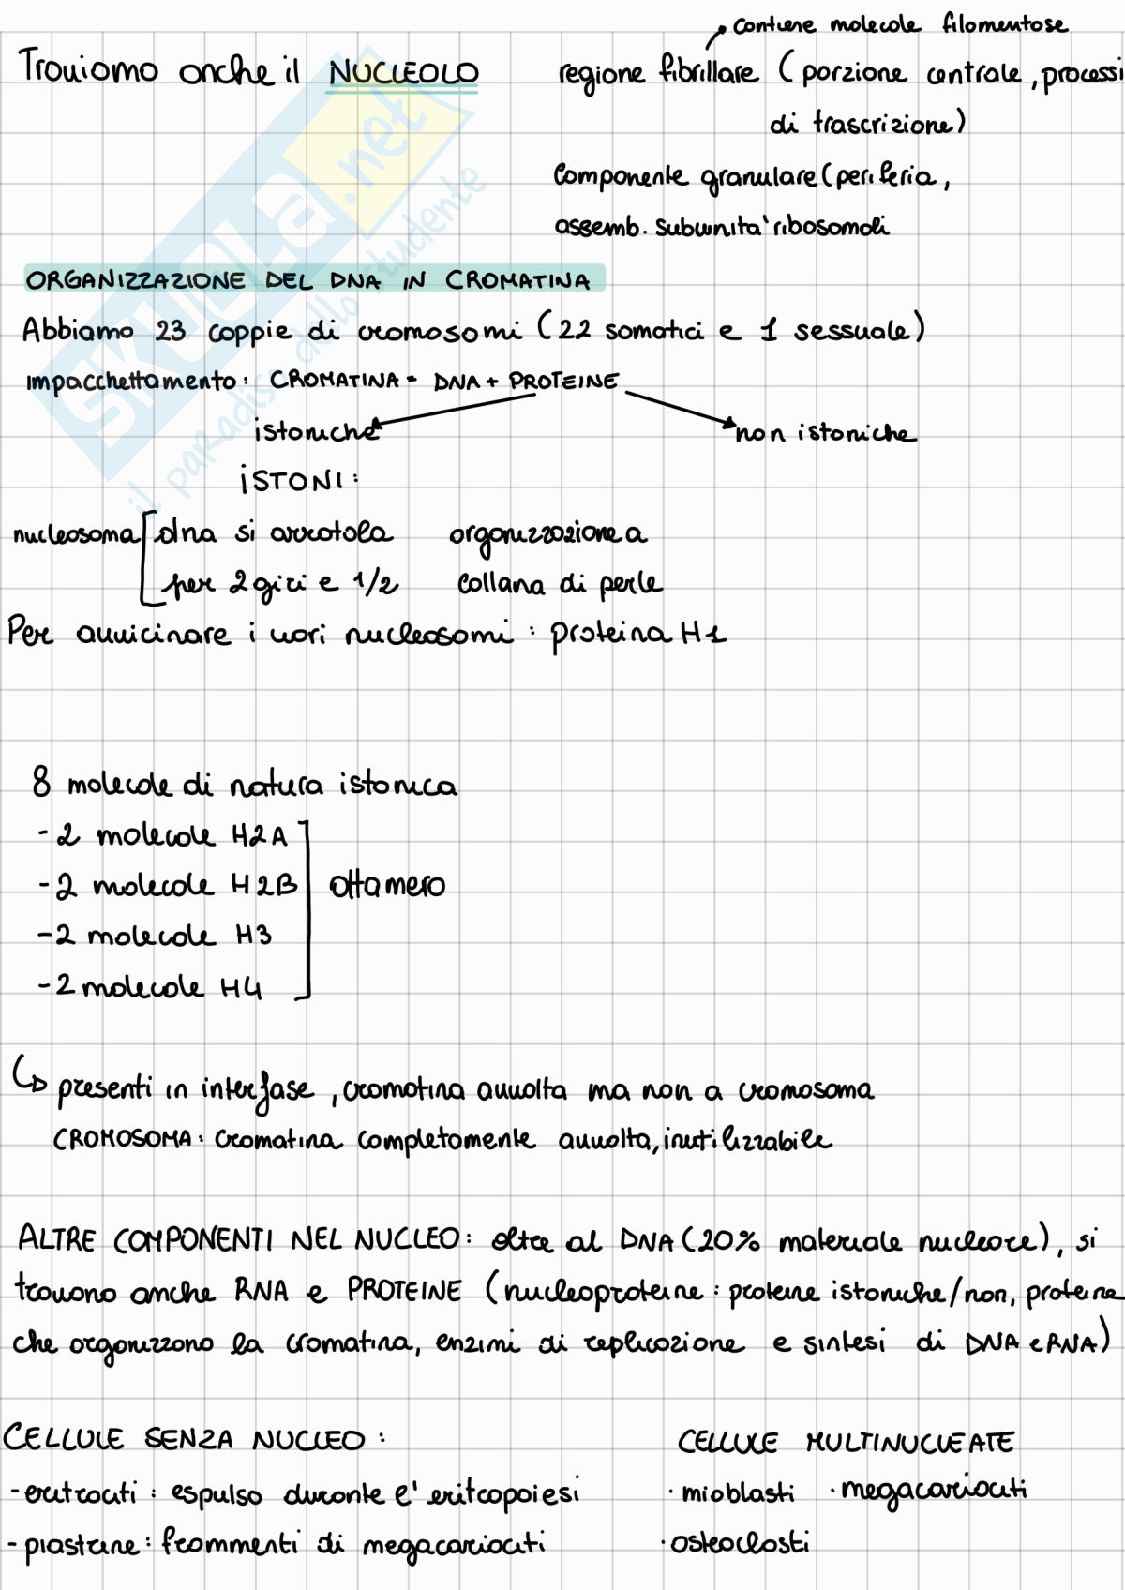 contiene molecole filamentose
Troviamo anche il NUCLEOLO
regione fibrillare (porzione centrale, processi
di trascrizione)
componente granulare (periferia,
assemb. subunita' ribosomali
ORGANIZZAZIONE DEL DNA IN CROMATINA
Abbiamo 23 coppie di cromosomi (22 somatici e 1 sessuale)
Impacchettamento: CROMATINA = DNA + PROTEINE
istoniche
non istoniche
ISTONI:
nucleosoma
dna si arrotola
per 2 giri e 1/2
organizzazione a
collana di perle
Per avvicinare i vari nucleosomi: proteina H1
8 molecole di natura istonica
-2 molecole H2A
-2 molecole H2B
ottamero
-2 molecole H3
-2 molecole H4
presenti in interfase, cromatina avvolta ma non a cromosoma
CROMOSOMA: cromatina completamente avvolta, inutilizzabile
ALTRE COMPONENTI NEL NUCLEO: oltre al DNA (20% materiale nucleare), si
trovano anche RNA e PROTEINE (nucleoproteine: proteine istoniche/non, proteine
che organizzano la cromatina, enzimi di replicazione e sintesi di DNA e RNA)
CELLULE SENZA NUCLEO:
-eritrociti: espulso durante l'eritropoiesi
-piastrine: frammenti di megacariociti
CELLULE MULTINUCLEATE
· mioblasti · megacariociti
· osteoclasti
SKUOLA.net
il paradiso dello studente